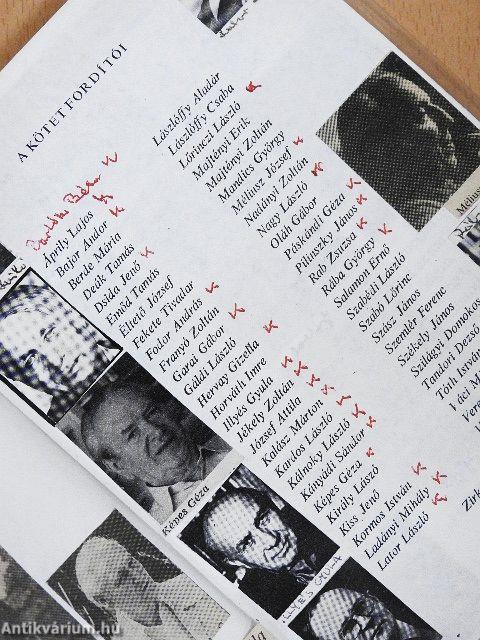 A KÖTET FORDÍTÓI
Áprily Lajos
Bajor Andor
Berde Mária
Deák Tamás
Dsida Jenő
Emőd Tamás
Éltető József
Fekete Tivadar
Fodor András
Franyó Zoltán
Garai Gábor
Gáldi László
Horvay Gizella
Horváth Imre
Illyés Gyula
Jékely Zoltán
József Attila
Kalász Márton
Kardos László
Kálnoky László
Kányádi Sándor
Képes Géza
Király László
Kiss Jenő
Kormos István
Ladányi Mihály
Lator László
Lászlóffy Aladár
Lászlóffy Csaba
Lőrinczi László
Majtényi Erik
Majtényi Zoltán
Mandics György
Méliusz József
Nadányi Zoltán
Nagy László
Oláh Gábor
Páskándi Géza
Pilinszky János
Rab Zsuzsa
Rába György
Salamon Ernő
Szabédi László
Szabó Lőrinc
Szász János
Szemlér Ferenc
Székely János
Szilágyi Domokos
Tandori Dezső
Tóth István
Váci M
Képes Géza
ILLYÉS GYULA
Antikvárium.hu